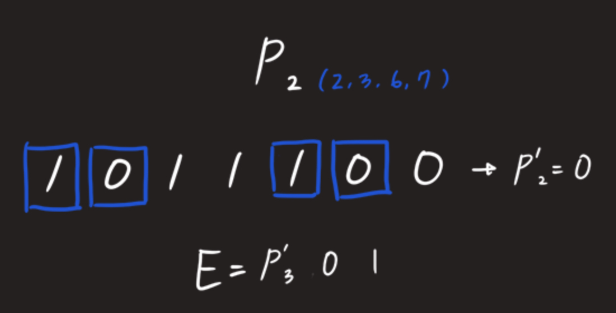 P₂ (2,3.6,7)
1 0 1 1 1 0 0 → P'₂ = 0
E = P'₃ 0 1